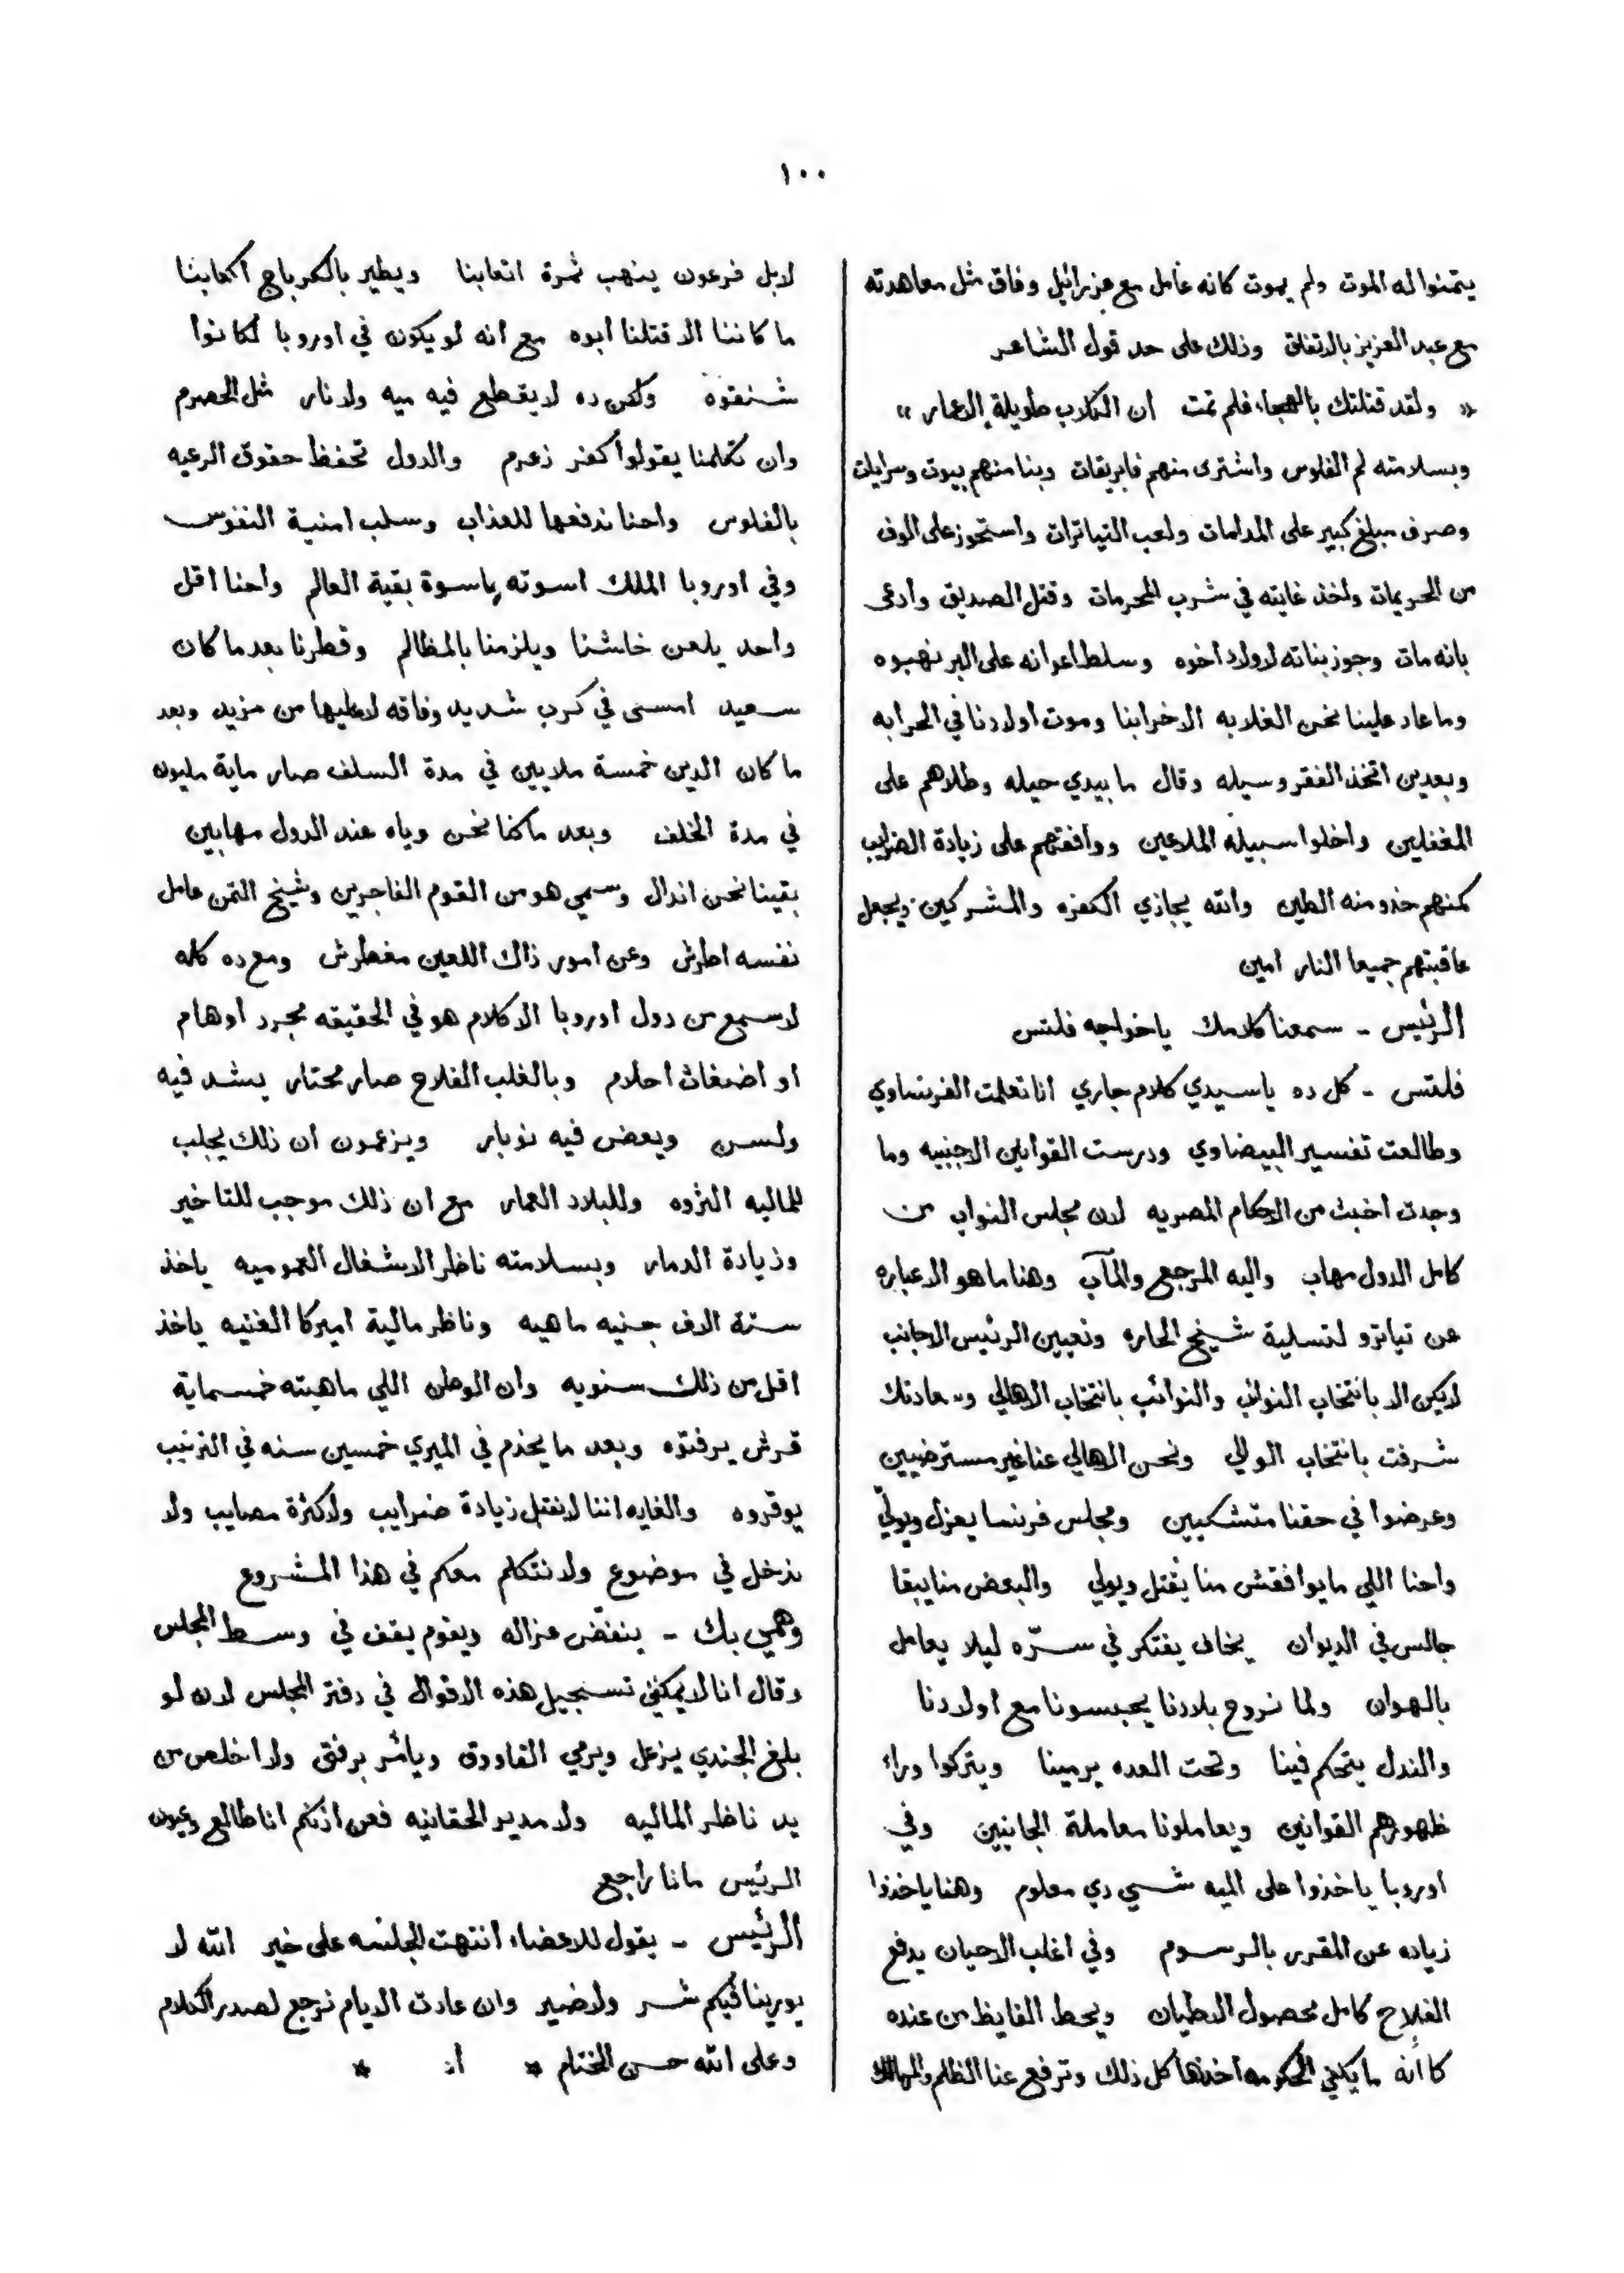 ١٠٠
يتمنوا له الموت ولم يموت كانه عامل مع عزرائيل وفاق مثل معاهدته
مع عبد العزيز بالاتفاق وذلك على حد قول الشاعر
« ولقد قتلتك بالهجاء فلم تمت ان الكلاب طويلة الاعمار »
وبسلامته لم الفلوس واشترى منهم فابريقات وبنا منهم بيوت وسرايات
وصرف مبلغ كبير على المدامات ولعب التياترات واستحوز على الوف
من الحريمات واخذ غايته في شرب المحرمات وقتل الصديق وادعى
بانه مات وجوز بناته لاولاد اخوه وسلط اعوانه على البر نهبوه
وما عاد علينا نحن الغلابه الا خرابنا وموت اولادنا في الحرابه
وبعدين اتخذ الفقر وسيله وقال ما بيدي حيله وطلاهم على
المغفلين واخلوا سبيله الملاعين ووافقتهم على زيادة الضرايب
كمنهم خذو منه الطين والله يجازي الكفره والمشركين ويجعل
عاقبتهم جميعا النار امين
الرئيس - سمعنا كلامك ياخواجه فلتس
فلتس - كل ده ياسيدي كلام جاري انا تعلمت الفرنساوي
وطالعت تفسير البيضاوي ودرست القوانين الاجنبيه وما
وجدت اخبث من الاحكام المصريه لان مجلس النواب من
كامل الدول مهاب واليه المرجع والمآب وهنا ما هو الا عباره
عن تياترو لتسلية شيخ الحاره وتعيين الرئيس الاجانب
لايكن الا بانتخاب النوائب والنوائب بانتخاب الاهالي وسعادتك
شرفت بانتخاب الوالي ونحن الاهالي عنا غير مسترضيين
وعرضوا في حقنا متشكيين ومجلس فرنسا يعزل ويولّي
واحنا اللي مايوافقش منا يقتل ويولي والبعض منا يبقا
جالس في الديوان يخاف يفتكر في سرّه ليلا يعامل
بالهوان ولما نروح بلادنا يحبسونا مع اولادنا
والندل يتحكم فينا وتحت العده يرمينا ويتركوا وراء
ظهورهم القوانين ويعاملونا معاملة الجانيين وفي
اوروبا ياخذوا على الميه شيي دي معلوم وهنا ياخذوا
زياده عن المقرر بالرسوم وفي اغلب الاحيان يدفع
الفلاح كامل محصول الاطيان ويحط الفايظ من عنده
كاانه ما يكفي الحكومه اخذها كل ذلك وترفع عنا الظلم والمهالك
لابل فرعون ينهب ثمرة اتعابنا ويطير بالكرباج اكعابنا
ما كاننا الا قتلنا ابوه مع انه لو يكون في اوروبا لكانوا
شنقوه ولكن ده لايقطع فيه ميه ولا نار مثل الحصرم
وان تكلمنا يقولوا كفر زعرم والدول تحفظ حقوق الرعيه
بالفلوس واحنا ندفعها للعذاب وسلب امنية النفوس
وفي اوروبا الملك اسوته باسوة بقية العالم واحنا اقل
واحد يلعن خاشنا ويلزمنا بالمظالم وقطرنا بعد ما كان
سعيد امسى في كرب شديد وفاقه لاعليها من مزيد وبعد
ما كان الدين خمسة ملايين في مدة السلف صار ماية مليون
في مدة الخلف وبعد ما كنا نحن وياه عند الدول مهابين
بقينا نحن اندال وسمي هو من القوم الفاجرين وشيخ التمن عامل
نفسه اطرش وعن امور ذاك اللعين مغطرش ومع ده كله
لاسمع من دول اوروبا الا كلام هو في الحقيقه مجرد اوهام
او اضغاث احلام وبالغلب الفلاح صار محتار يشد فيه
ولسن ويعض فيه نوبار ويزعمون ان ذلك يجلب
للماليه الثروه وللبلاد العمار مع ان ذلك موجب للتاخير
وزيادة الدمار وبسلامته ناظر الاشغال العموميه ياخذ
ستة الاف جنيه ماهيه وناظر مالية اميركا الغنيه ياخذ
اقل من ذلك سنويه وان الوطن اللي ماهيته خمسماية
قرش يرفتوه وبعد ما يخدم في الميري خمسين سنه في الترتيب
يوفروه والغايه اننا لانقبل زيادة ضرايب ولاكثرة مصايب ولا
ندخل في موضوع ولا نتكلم معكم في هذا المشروع
وهمي بك - ينفّض عزاله ويقوم يقف في وسط المجلس
وقال انا لايمكنني تسجيل هذه الاقوال في دفتر المجلس لان لو
بلغ الجندي يزعل ويرمي القاووق ويأمر برفتي ولا اخلص من
يد ناظر الماليه ولا مدير الحقانيه فعن اذنكم انا طالع وعيون
الرئيس مانا راجع
الرئيس - يقول للاعضاء انتهت الجلسه على خير الله لا
يورينا فيكم شر ولاضير وان عادت الايام نرجع لصدر الكلام
وعلى الله حسن الختام * أ: *